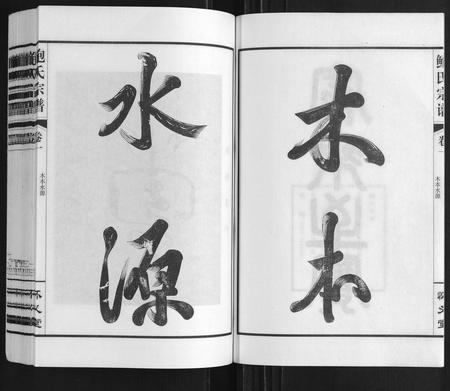 木本
水源
鲍氏宗谱
卷一
木本水源
鲍氏宗谱
卷一
木本水源